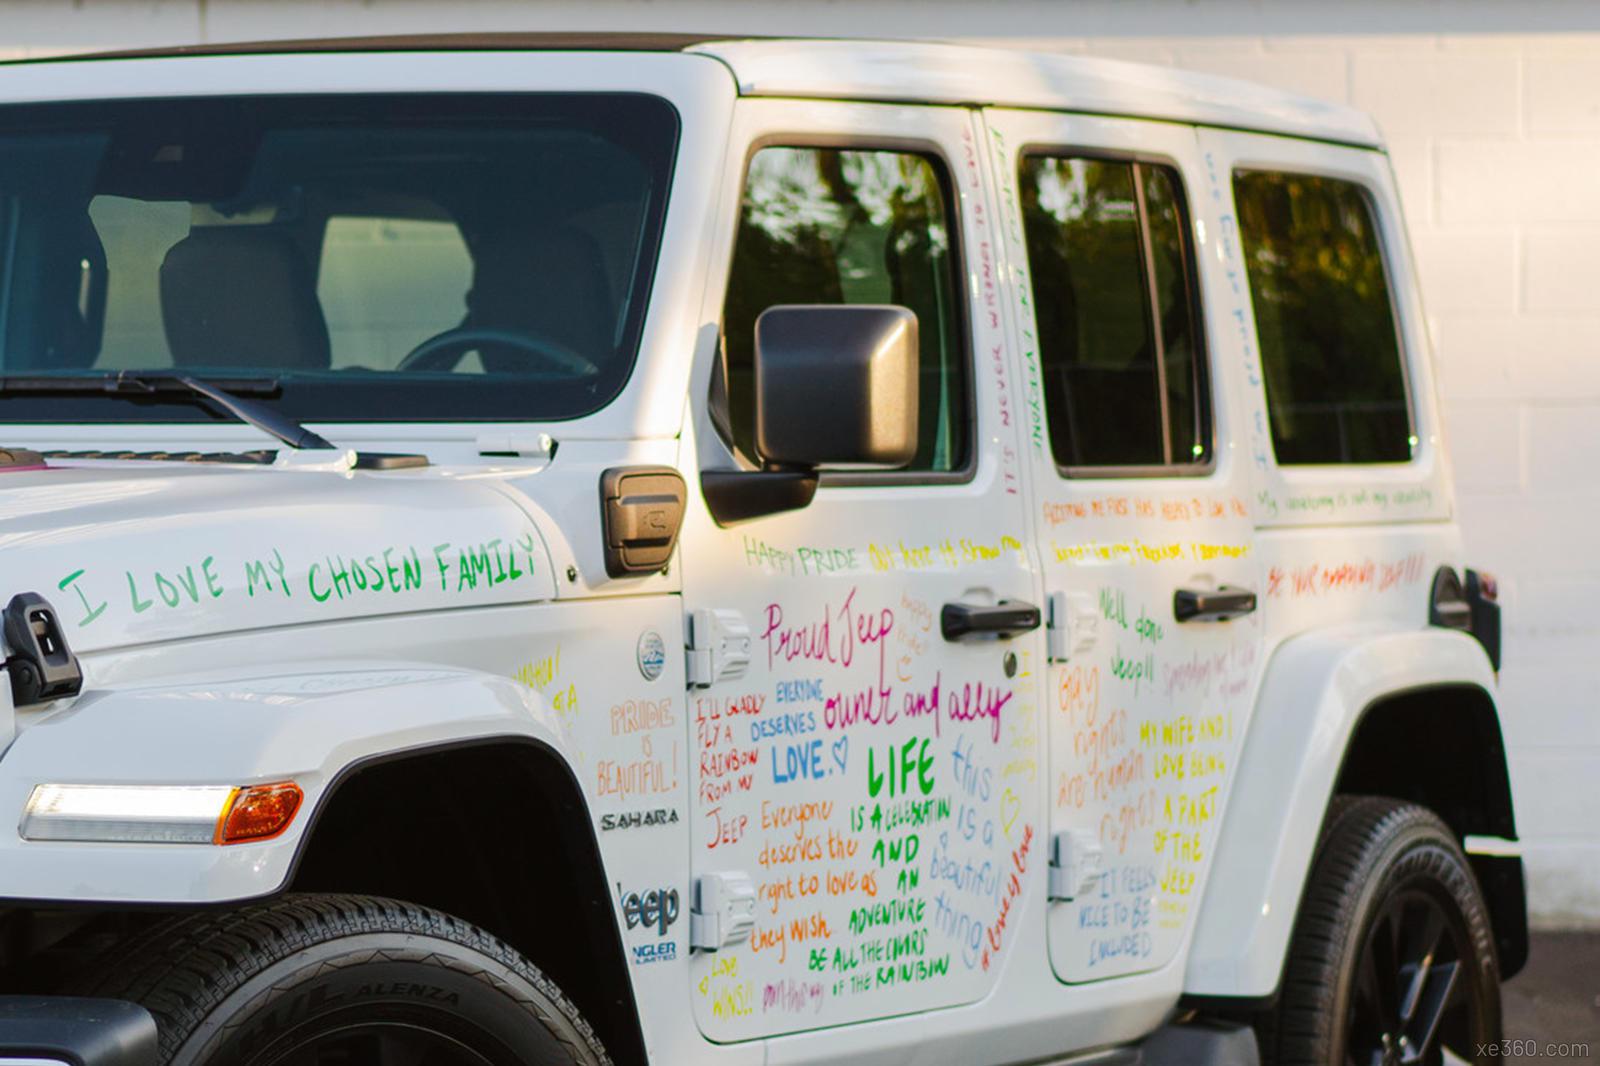 I LOVE MY CHOSEN FAMILY
IT'S NEVER WRONG TO LOVE
HAPPY PRIDE
Proud Jeep
owner and ally
happy
PRIDE
IS
BEAUTIFUL!
SAHARA
Jeep
I'LL GLADLY
FLY A
RAINBOW
FROM MY
JEEP
EVERYONE
DESERVES
LOVE.
LIFE
IS A CELEBRATION
AND
AN
ADVENTURE
BE ALL THE COLORS
OF THE RAINBOW
Everyone
deserves the
right to love as
they wish.
this
is a
beautiful
thing
#loveislove
Love
WINS!!
ACCEPTING ME FIRST HAS HELPED TO LOVE YOU
My anatomy is not my identity
BE YOUR AMAZING SELF!!!!
Well done
Jeep!!
Gay
rights
are human
rights
MY WIFE AND I
LOVE BEING
A PART
OF THE
JEEP
IT FEELS
NICE TO BE
INCLUDED
ALENZA
xe360.com